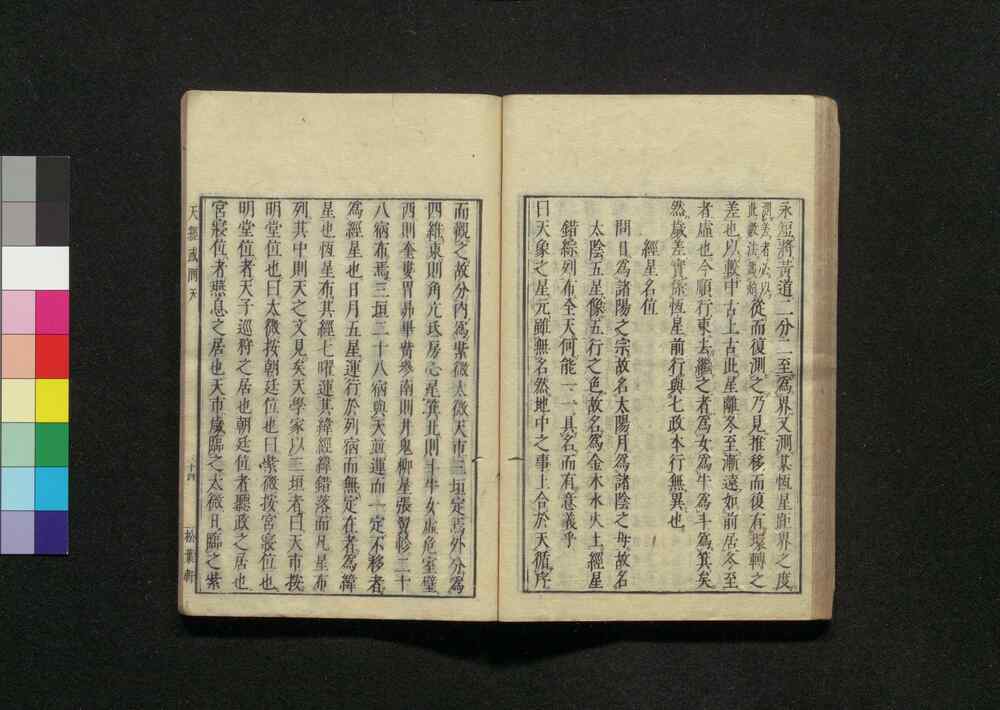 永短將黃道二分二至為界又測某恆星距界之度
測差者必以從而復測之乃見推移而復有環轉之
差也以較中古上古此星離冬至漸遠如前居冬至
者虛也今順行東去繼之者為女為牛為斗為箕矣
然歲差實係恆星前行與七政本行無異也
經星名位
問日為諸陽之宗故名太陽月為諸陰之母故名
太陰五星像五行之色故名為金木水火土經星
錯綜列布全天何能一一具名而有意義乎
曰天象之星元雖無名然地中之事上合於天循序
而觀之故分內為紫微太微天市三垣定焉外分為
四維東則角亢氐房心尾箕北則斗牛女虛危室壁
西則奎婁胃昴畢觜參南則井鬼柳星張翼軫二十
八宿布焉三垣二十八宿與天並運而一定不移者
為經星也日月五星運行於列宿而無定在者為緯
星也恆星布其經七曜運其緯經緯錯落而凡星布
列其中則天之文見矣天學家以三垣者曰天市按
明堂位也曰太微按朝廷位也曰紫微按宮寢位也
明堂位者天子巡狩之居也朝廷位者聽政之居也
宮寢位者燕息之居也天市歲臨之太微月臨之紫
天經或問 天
十四
松葉軒